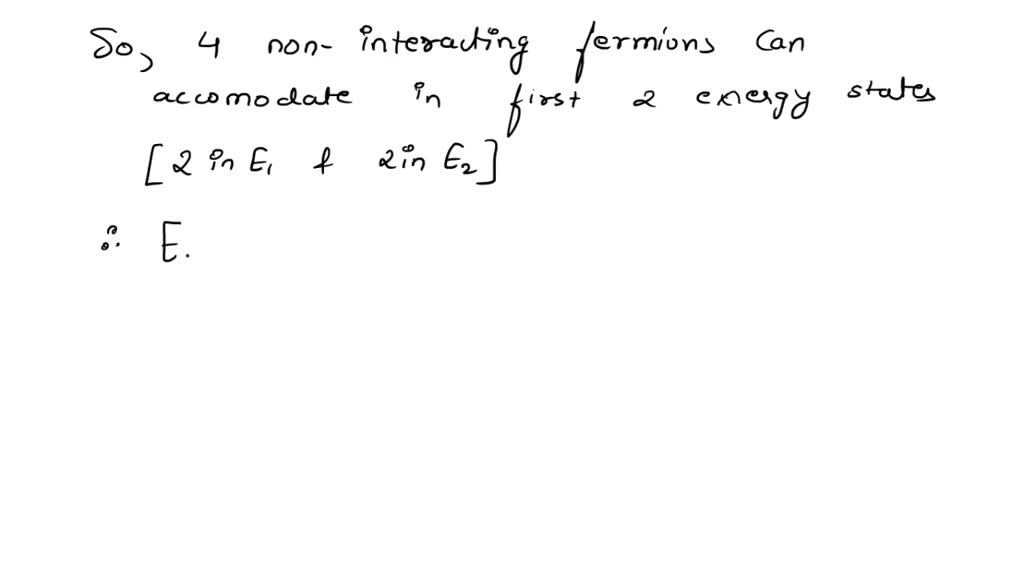 So, 4 non-interacting fermions can
accomodate in first 2 energy states
[2 in E₁ & 2 in E₂]
∴ E.